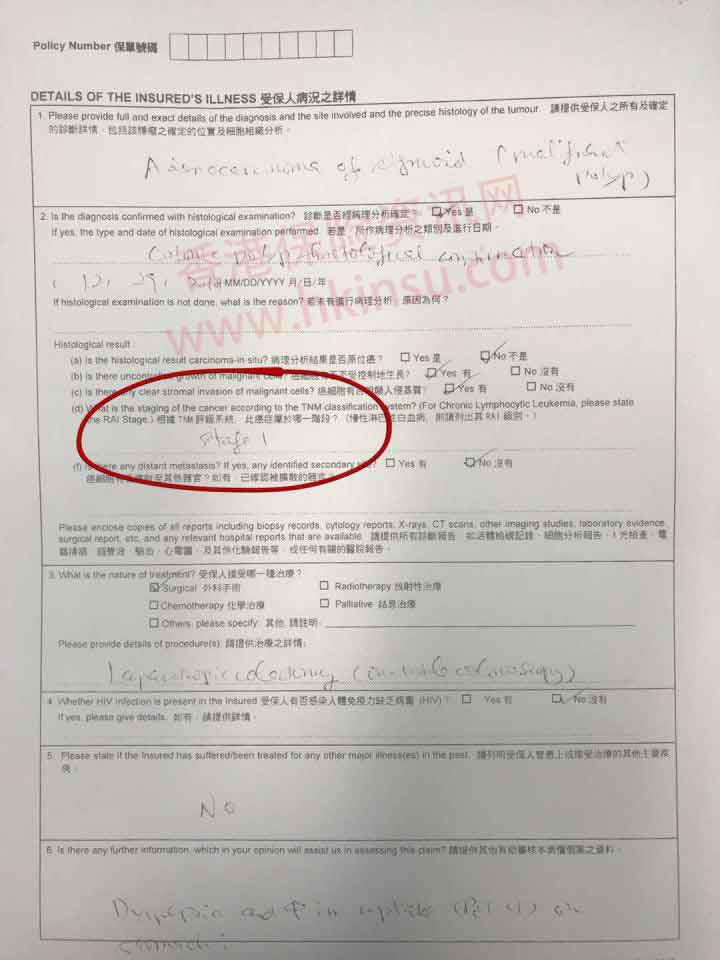 Policy Number 保單號碼
DETAILS OF THE INSURED'S ILLNESS 受保人病況之詳情
1. Please provide full and exact details of the diagnosis and the site involved and the precise histology of the tumour. 請提供受保人之所有及確定
的診斷詳情,包括該腫瘤之確定的位置及細胞組織分析。
Adenocarcinoma of sigmoid (malignant
polyp)
2. Is the diagnosis confirmed with histological examination? 診斷是否經病理分析確定? Yes 是 No 不是
If yes, the type and date of histological examination performed. 若是,所作病理分析之類別及進行日期。
Colonic polyp histological
MM/DD/YYYY 月/日/年
If histological examination is not done, what is the reason? 若未有進行病理分析,原因為何?
香港保险资讯网
www.hkinsu.com
Histological result:
(a) Is the histological result carcinoma-in-situ? 病理分析結果是否原位癌? Yes 是 No 不是
(b) Is there uncontrolled growth of malignant cells? 癌細胞有否不受控制地生長? Yes 有 No 沒有
(c) Is there any clear stromal invasion of malignant cells? 癌細胞有否明顯入侵基質? Yes 有 No 沒有
(d) What is the staging of the cancer according to the TNM classification system? (For Chronic Lymphocytic Leukemia, please state
the RAI Stage.) 根據 TNM 評級系統,此癌症屬於哪一階段?(慢性淋巴性白血病,請列出其 RAI 級別。)
Stage 1
(f) Is there any distant metastasis? If yes, any identified secondary site? Yes 有 No 沒有
Please enclose copies of all reports including biopsy records, cytology reports, X-rays, CT scans, other imaging studies, laboratory evidence,
surgical report, etc, and any relevant hospital reports that are available.
3. What is the nature of treatment? 受保人接受哪一種治療?
Surgical 外科手術 Radiotherapy 放射性治療
Chemotherapy 化學治療 Palliative 姑息治療
Others, please specify: 其他,請註明:
Please provide details of procedure(s): 請提供治療之詳情:
4. Whether HIV infection is present in the Insured 受保人有否感染人體免疫力缺乏病毒 (HIV)? Yes 有 No 沒有
If yes, please give details. 如有,請提供詳情。
5. Please state if the Insured has suffered/been treated for any other major illness(es) in the past. 請列明受保人曾患上或接受治療的其他主要疾
病。
NO
6. Is there any further information, which in your opinion will assist us in assessing this claim? 請提供其他有助審核本賠償個案之資料。
Dyspepsia and in
stomach